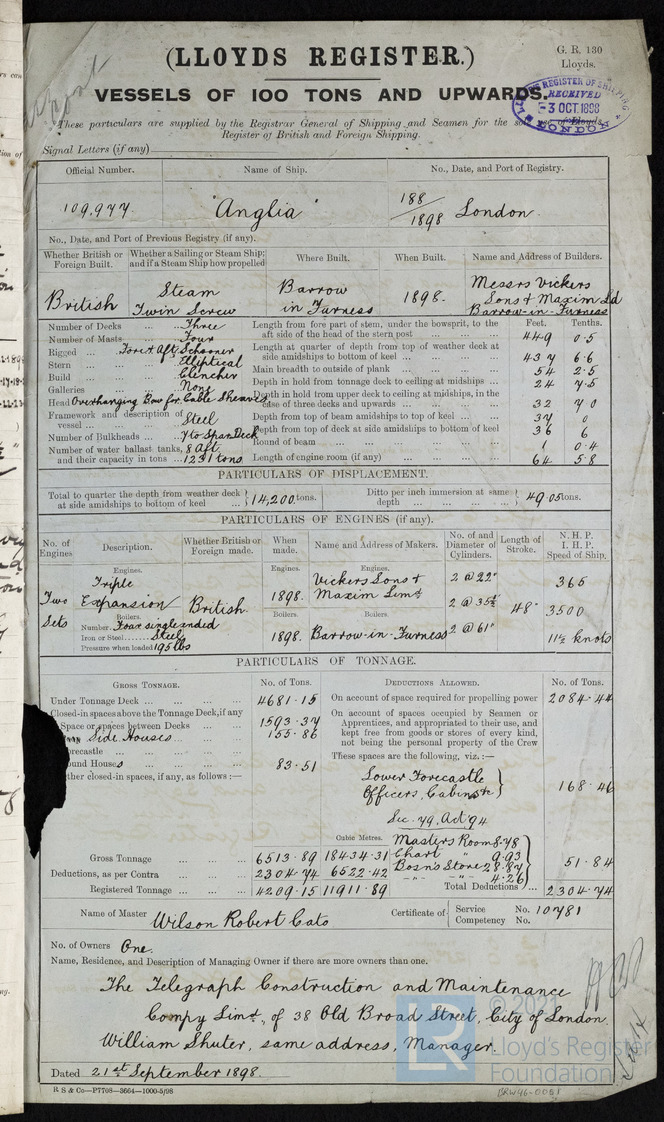 (LLOYDS REGISTER.)
G. R. 130
Lloyds.
VESSELS OF 100 TONS AND UPWARDS.
LLOYD'S REGISTER OF SHIPPING
RECEIVED
3 OCT. 1898
LONDON
These particulars are supplied by the Registrar General of Shipping and Seamen for the sole use of Lloyds
Register of British and Foreign Shipping.
Signal Letters (if any)
Official Number. Name of Ship. No., Date, and Port of Registry.
109,977 "Anglia" 188/1898 London.
No., Date, and Port of Previous Registry (if any).
Whether British or Foreign Built. Whether a Sailing or Steam Ship; and if a Steam Ship how propelled Where Built. When Built. Name and Address of Builders.
British Steam Twin Screw Barrow in Furness 1898. Messrs Vickers Sons & Maxim Ld Barrow-in-Furness
Number of Decks ... Three
Number of Masts ... Four
Rigged ... Fore & Aft Schooner
Stern ... Elliptical
Build ... Clencher
Galleries ... None
Head Overhanging Bow for Cable Sheaves
Framework and description of vessel ... Steel
Number of Bulkheads ... 7 to Spar Deck
Number of water ballast tanks, 8 Aft
and their capacity in tons ... 1231 tons
Feet. Tenths.
Length from fore part of stem, under the bowsprit, to the
aft side of the head of the stern post ... 449 0.5
Length at quarter of depth from top of weather deck at
side amidships to bottom of keel ... 437 6.6
Main breadth to outside of plank ... 54 2.5
Depth in hold from tonnage deck to ceiling at midships ... 24 7.5
Depth in hold from upper deck to ceiling at midships, in the
case of three decks and upwards ... 32 70
Depth from top of beam amidships to top of keel ... 37 0
Depth from top of deck at side amidships to bottom of keel 36 6
Round of beam ... 1 0.4
Length of engine room (if any) ... 64 5.8
PARTICULARS OF DISPLACEMENT.
Total to quarter the depth from weather deck at side amidships to bottom of keel ... 14,200 tons.
Ditto per inch immersion at same depth ... 49.05 tons.
PARTICULARS OF ENGINES (if any).
No. of Engines Description. Whether British or Foreign made. When made. Name and Address of Makers. No. of and Diameter of Cylinders. Length of Stroke. N. H. P. I. H. P. Speed of Ship.
Engines. Engines. Engines.
Two Sets Triple Expansion British. 1898. Vickers Sons & Maxim Limd 2 @ 22" 2 @ 35½" 2 @ 61" 48" 365 3500 11½ knots
Boilers. Boilers. Boilers.
Number. Four single ended
Iron or Steel ... Steel 1898. Barrow-in-Furness
Pressure when loaded 195 lbs
PARTICULARS OF TONNAGE.
GROSS TONNAGE. No. of Tons.
Under Tonnage Deck ... 4681.15
Closed-in spaces above the Tonnage Deck, if any
Space or spaces between Decks ... 1593.37
Side Houses ... 155.86
Forecastle ...
Round Houses ... 83.51
Other closed-in spaces, if any, as follows :—
Cubic Metres.
Gross Tonnage ... 6513.89 18434.31
Deductions, as per Contra ... 2304.74 6522.42
Registered Tonnage ... 4209.15 11911.89
DEDUCTIONS ALLOWED. No. of Tons.
On account of space required for propelling power 2084.44
On account of spaces occupied by Seamen or
Apprentices, and appropriated to their use, and
kept free from goods or stores of every kind,
not being the personal property of the Crew
These spaces are the following, viz. :—
Lower Forecastle
Officers, Cabins &c } 168.46
Sec. 79, Act 94
Masters Room 8.78
Chart " 9.93
Bosn's Store 28.87
" " 4.26
51.84
Total Deductions ... 2304.74
Name of Master Wilson Robert Cato Certificate of Service Competency No. 10781 No.
No. of Owners One.
Name, Residence, and Description of Managing Owner if there are more owners than one.
The Telegraph Construction and Maintenance
Compy Limd, of 38 Old Broad Street, City of London.
William Shuter, same address, Manager.
Dated 21st September 1898.
R S & Co—P7708—3664—1000-5/98
BRW46-0061
LR
© 2021
Lloyd's Register
Foundation